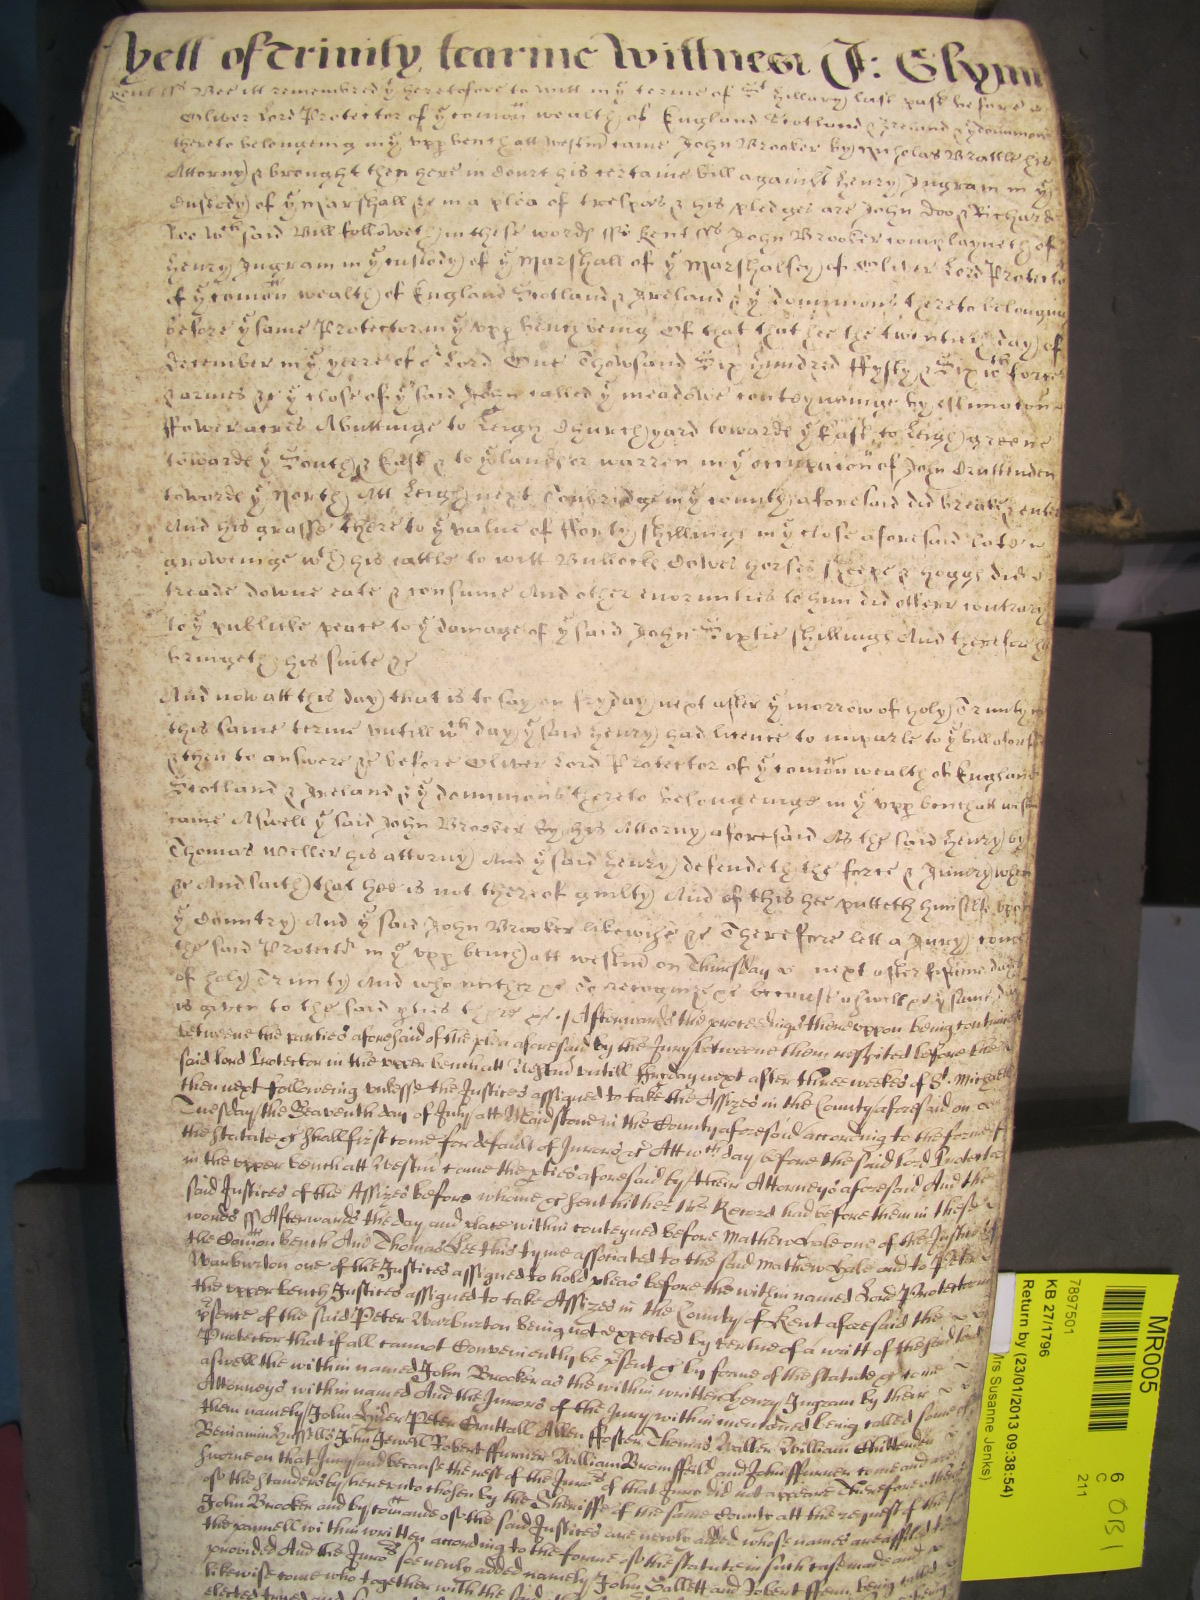 yett of Trinity tearme Wittnes J: Glynn
Kent ss Bee itt remembred yt heretofore to witt in ye terme of St Hillary last past before
Oliver Lord Protector of ye comon wealth of England Scotland & Ireland & ye dominions
thereto belongeing in ye upp bench att westm came John Brooker by Nicholas Brattle his
Attorny & brought then here in Court his certaine bill against Henry Ingram in ye
Custody of ye Marshall &c in a plea of trespas & his pledges are John Doo & Richard
Roo wch said Bill followeth in these words ss Kent ss John Brooker complayneth of
Henry Ingram in ye custody of ye Marshall of ye Marshalsey of Oliver Lord Protector
of ye comon wealth of England Scotland & Ireland & ye dominions thereto belonging
before ye same Protector in ye upp bench being Of that that hee the twentieth day of
December in ye yeere of or Lord One Thowsand Six Hundred ffyfty & Six wth force
& armes &c ye close of ye said John called ye meadowe conteyneinge by estimacon
ffower acres Abuttinge to Leigh Church yard towards ye East to Leigh greene
towards ye South & East & to ye land her warren in ye occupacon of John Cruttinden
towards ye North Att Leigh next Tonbridge in ye county aforesaid did breake & enter
And his grasse there to ye value of fforty shillings in ye close aforesaid late
groweinge wth his cattle to witt Bullocks Cowes horses sheepe & hoggs did
treade downe eate & consume And other enormities to him did offerr contrary
to ye publike peace to ye domage of ye said John Sixtie shillings And therefore he
bringeth his suite &c
And now att this day that is to say on fryday next after ye morrow of holy Trinity
this same terme untill wch day ye said Henry had licence to imparle to ye bill aforesaid
& then to answere &c before Oliver Lord Protector of ye comon wealth of England
Scotland & Ireland & ye dominions thereto belongeinge in ye upp bench att westm
came Aswell ye said John Brooker by his Attorny aforesaid As the said Henry by
Thomas Weller his attorny And ye said Henry defendeth the force & Iniury when
&c And saith that hee is not thereof guilty And of this hee putteth himselfe upon
ye Country And ye said John Brooker likewise &c Therefore lett a Jury come
the said Protectr in ye upp bench att westm on Thursday next after fifteene dayes
of holy Trinity And who neither &c To recognize &c because aswell &c ye same day
is given to the said pties there &c Afterwards the proceedings thereuppon being continued
betweene the parties aforesaid of the plea aforesaid by the Jury betweene them respited before the
said Lord Protector in the upper bench att Westm untill Fryday next after three weekes of St. Michaell
then next followeing unlesse the Justices assigned to take the Assizes in the County aforesaid on
Tuesday the Seaventh day of July att Maidstone in the County aforesaid according to the forme of
the statute &c shall first come for default of Jurors &c Att wch day before the said Lord Protector
in the upper bench att Westm came the pties aforesaid by their Attorneys aforesaid And the
said Justices of the Assizes before whome &c sent hither the Record had before them in these
words ss Afterwards the day and place within conteyned before Mathew Hale one of the Justices of
the Comon bench And Thomas Lee this tyme associated to the said Mathew Hale and to Peter
Warburton one of the Justices assigned to hold pleas before the within named Lord Protector in
the upper bench Justices assigned to take Assizes in the County of Kent aforesaid the
psence of the said Peter Warburton being not expected by vertue of a writt of the said Lord
Protector that if all cannot Conveniently be psent &c by forme of the statute &c come
aswell the within named John Brooker as the within written Henry Ingram by their
Attorneys within named And the Jurors of the Jury within mentioned being called some of
them namely John Peter Allen ffoster Thomas Waller William Chittenden
Benjamin John Jewell Robert ffurner William Bromffeild and John ffurner come and are
sworne on that Jury and because the rest of the Jurors of that Jury did not appeare Therefore others
of the standers by hereunto chosen by the Sheriffe of the same County att the request of the
John Brooker and by comande of the said Justices are newly added whose names are affiled to
the pannell within written according to the forme of the statute in such case made and
provided And the Jurors soe newly added namely John Sallett and Robert ffenn being called
likewise come who together with the said
elected tryed and
MR005
6
C
211
OB 1
7897501
KB 27/1796
Return by (23/01/2013 09:38:54)
Mrs Susanne Jenks)